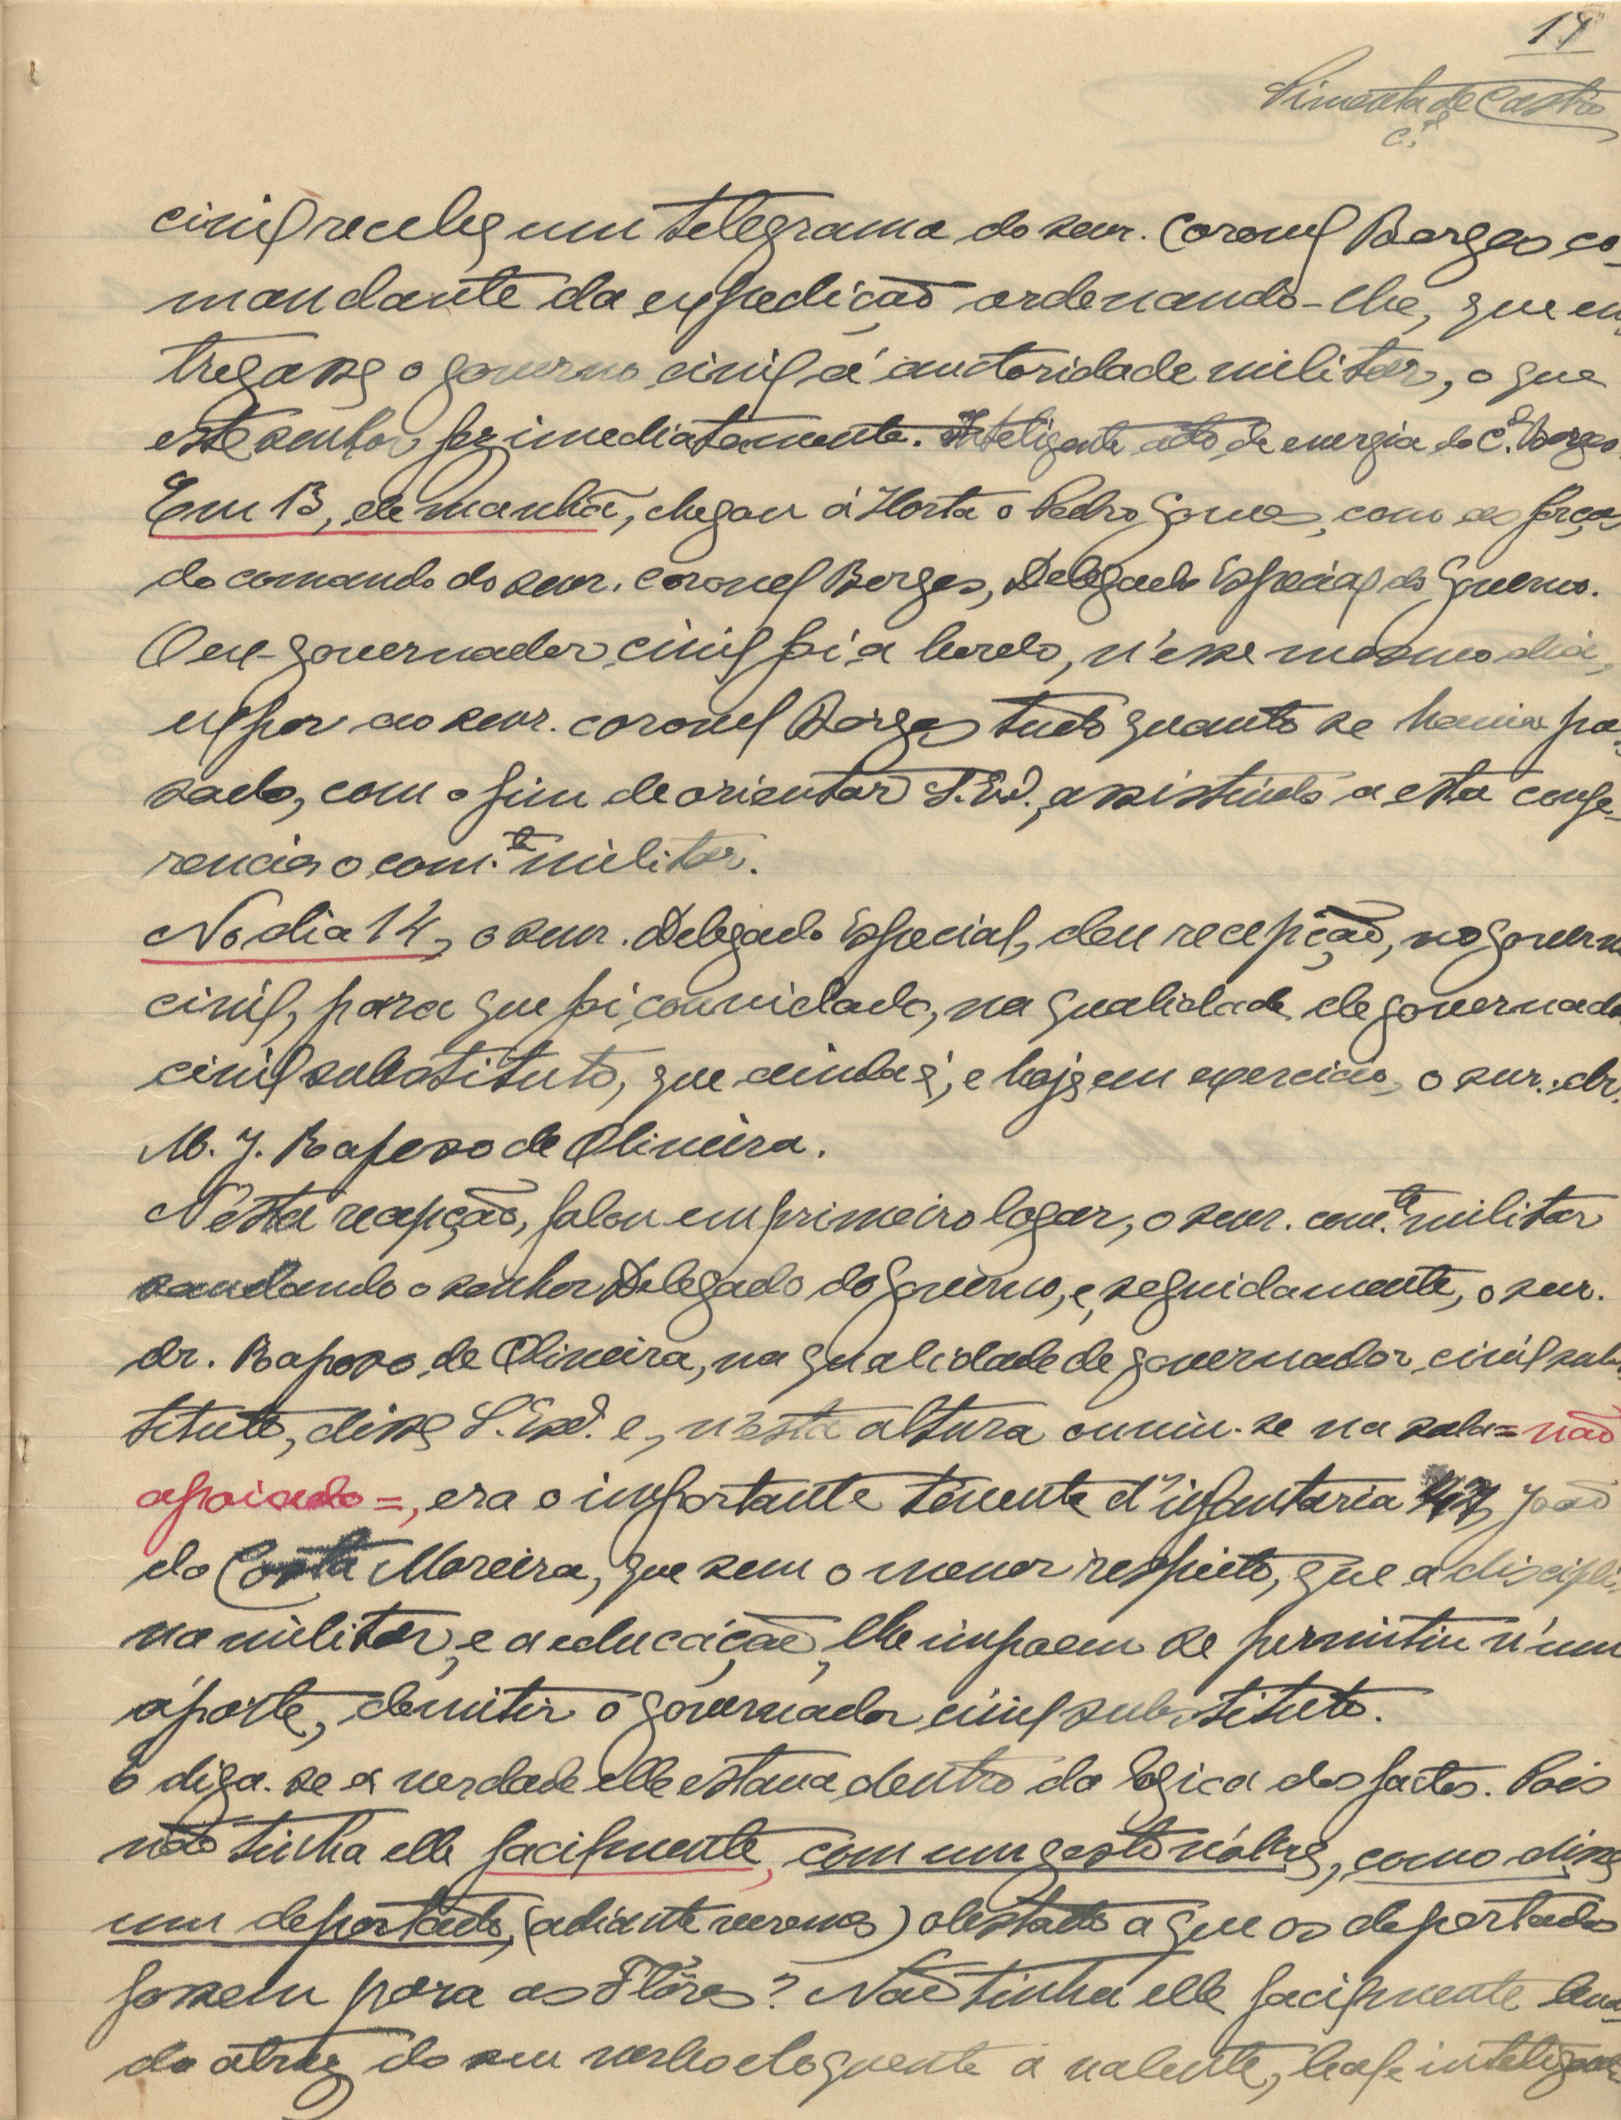 17
Pimenta de Castro
C.el
civil recebeu um telegrama do snr. coronel Borges co-
mandante da expedição ordenando-lhe, que en
tregasse o governo civil á auctoridade militar, o que
este senhor fez imediatamente. Inteligente acto de energia do C.el Borges.
Em 13, de manhã, chegou á Horta o Pedro Gomes, com as forças
do comando do snr. coronel Borges, Delegado Especial do Governo.
O ex-governador civil foi a bordo, n'esse mesmo dia,
expor ao snr. coronel Borges tudo quanto se havia pas
sado, com o fim de orientar S. Ex.ª, assistindo a esta confe-
rencia o com.te militar.
No dia 14, o snr. Delegado Especial, deu recepção, no governo
civil, para que foi convidado, na qualidade de governador
civil substituto, que ainda é, e hoje em exercicio, o snr. dr.
M. J. Raposo de Oliveira.
N'esta recepção, falou em primeiro logar, o snr. com.te militar
saudando o senhor Delegado do Governo, e, seguidamente, o snr.
dr. Raposo de Oliveira, na qualidade de governador civil subs
tituto, disse S. Ex.ª e, n'esta altura ouviu-se na sala = não
apoiado =, era o importante tenente d'infantaria João
da Costa Moreira, que sem o menor respeito, que a discipli
na militar, e a educação, lhe impoem se permitiu n'um
áparte, demitir o governador civil substituto.
E diga-se a verdade elle estava dentro da logica dos factos. Pois
não tinha elle facilmente, com um gesto nóbre, como disse
um deportado, (adiante veremos) obstado a que os deportados
fossem para as Flôres? Não tinha elle facilmente leva-
do atraz do seu verbo eloquente a valente, leal e inteligente